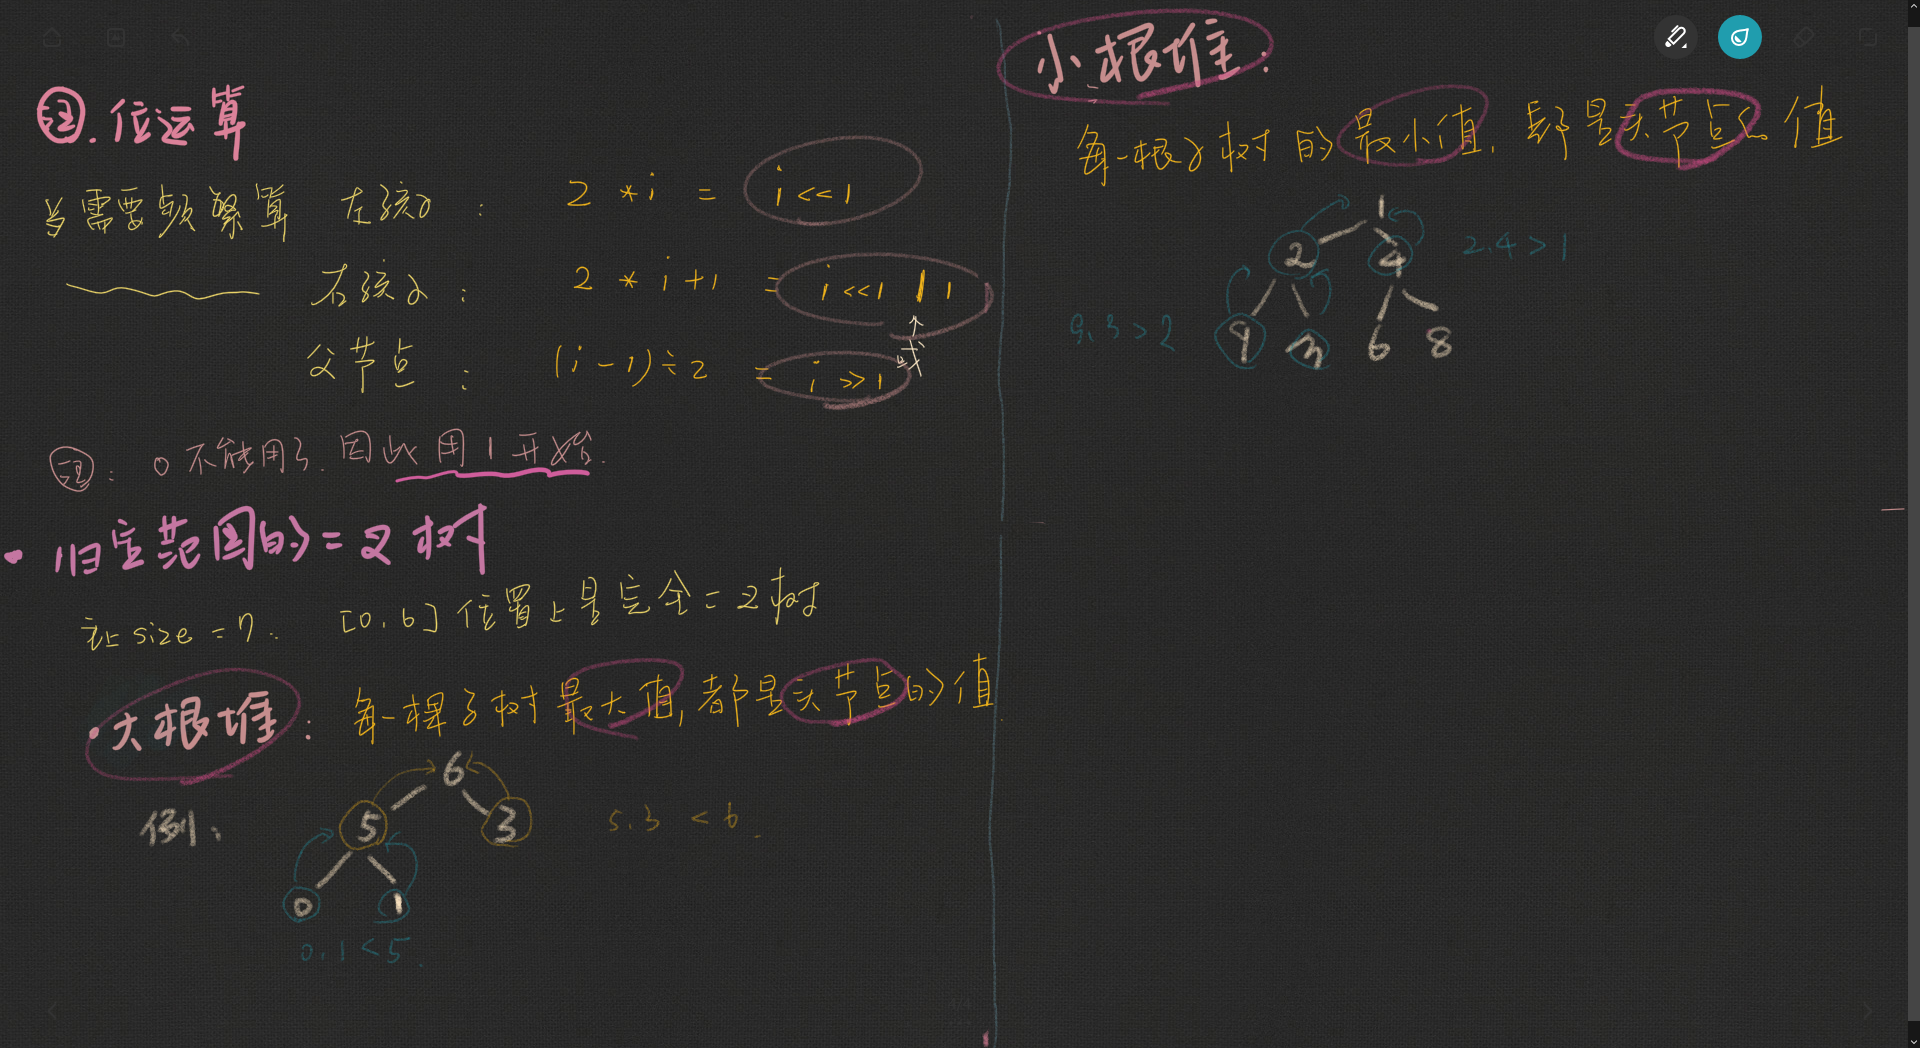 注. 位运算
当需要频繁算 左孩子 : 2 * i = i << 1
右孩子 : 2 * i + 1 = i << 1 | 1
或
父节点 : (i - 1) ÷ 2 = i >> 1
注: 0 不能用了. 因此用 1 开始.
· 固定范围的=叉树
让 size = 7. [0, 6] 位置上是完全=叉树
· 大根堆 : 每一棵子树最大值, 都是头节点的值.
例:
6
5 3
5. 3 < 6.
0 1
0, 1 < 5.
小根堆:
每一根子树的最小值, 都是头节点的值
1
2 4
2. 4 > 1
9 3 6 8
9. 3 > 2